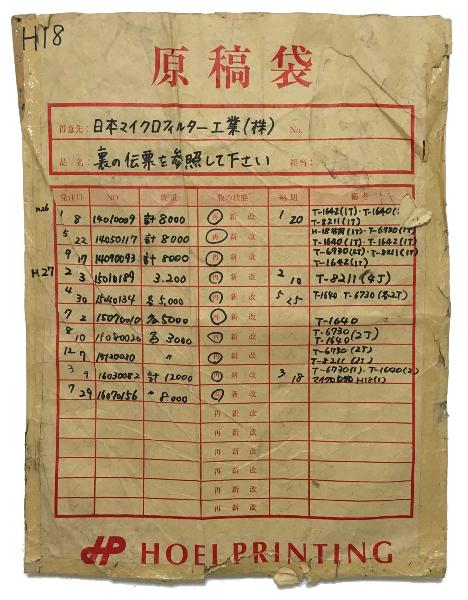 H18
原稿袋
得意先: 日本マイクロフィルター工業(株) No.
品名: 裏の伝票を参照して下さい 担当:
発注日 NO. 数量 版の状態 納期 備考
H26 1 8 14010009 計8000 再 新 改 1 20 T-1642(1T)・T-1640(
T-8211(1T)
5 22 14050117 計8000 再 新 改 T-6730(1T)
T-1640(1T)・T-1642(1T)
9 17 14090093 計8000 再 新 改 T-6930(2T)・T-8211(1T)
T-1642(1T)
H27 2 3 15010189 3.200 再 新 改 2 10 T-8211(4T)
4 30 15040134 各5,000 再 新 改 5 25 T-1640 T-6730(各2T)
7 2 15070010 各5000 再 新 改 T-1640
8 10 15080020 各8000 再 新 改 T-6730(2T)
T-1640
12 7 15120020 〃 再 新 改 T-6730(2T)
T-8211(2T)
3 9 16030082 計12000 再 新 改 3 18 T-6730(1)・T-1640(2)
H18(1)
7 29 16070156 〃8.000 再 新 改
再 新 改
再 新 改
再 新 改
再 新 改
再 新 改
HP HOEI PRINTING